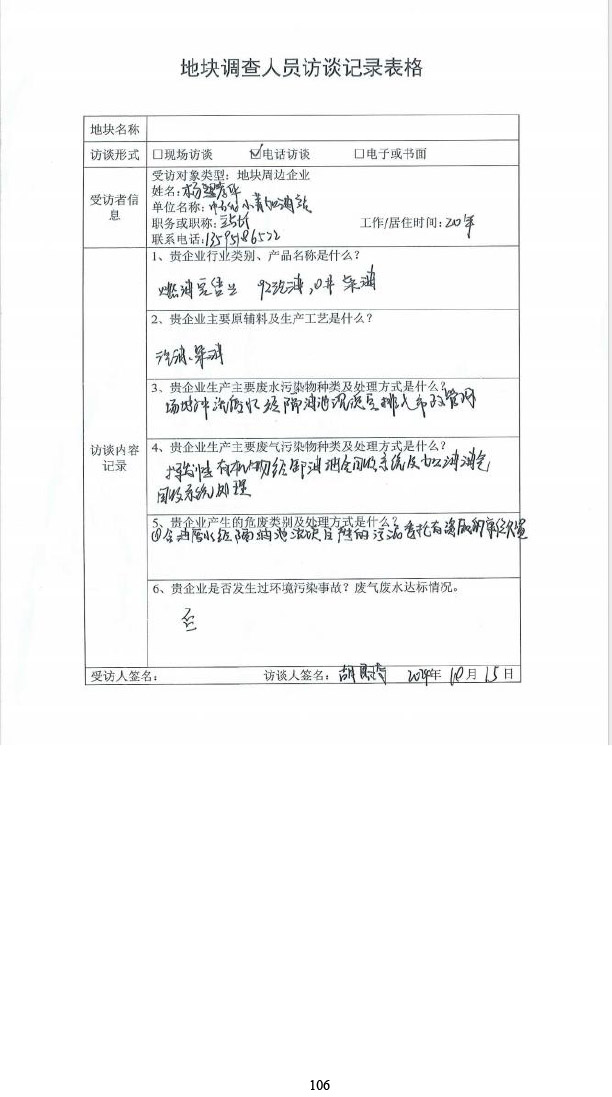 地块调查人员访谈记录表格
地块名称
访谈形式 □现场访谈 ☑电话访谈 □电子或书面
受访者信息
受访对象类型：地块周边企业
姓名：杨
单位名称：中石化小青加油站
职务或职称：
工作/居住时间：20年
联系电话：13595186522
访谈内容记录
1、贵企业行业类别、产品名称是什么？
燃油零售业 92汽油，0# 柴油
2、贵企业主要原辅料及生产工艺是什么？
汽油、柴油
3、贵企业生产主要废水污染物种类及处理方式是什么？
场地冲洗废水经隔油池沉淀后排入市政管网
4、贵企业生产主要废气污染物种类及处理方式是什么？
挥发性有机物经卸油油气回收系统及加油油气
回收系统处理
5、贵企业产生的危废类别及处理方式是什么？
①含油废水经隔油池沉淀后产生的污泥委托有资质的单位处置
6、贵企业是否发生过环境污染事故？废气废水达标情况。
否
受访人签名： 访谈人签名：胡 2024年 10月 15日
106